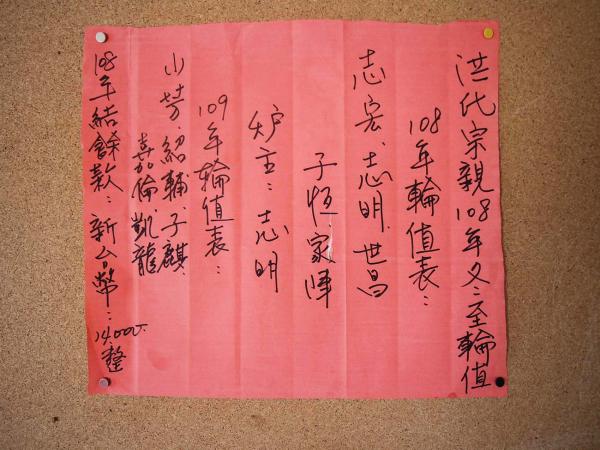 洪代宗親108年冬至輪值
108年輪值表:
志宏、志明、世昌
子恒、家暉
炉主:志明
109年輪值表:
小芳、紹輔、子麒、
嘉倫、凱龍
108年結餘款:新台幣:14,000.整